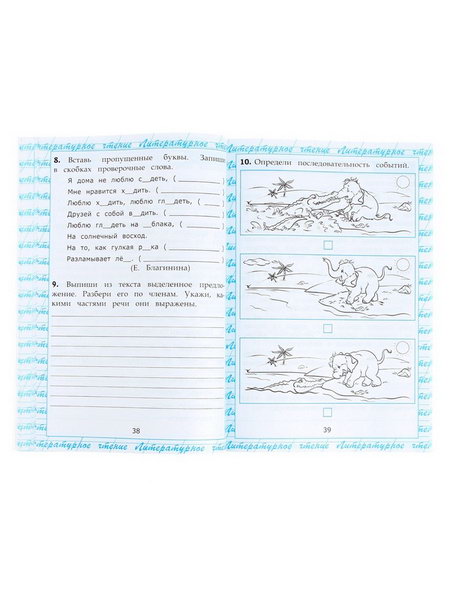 Литературное чтение Литературное чтение
8. Вставь пропущенные буквы. Запиши
в скобках проверочные слова.
Я дома не люблю с__деть, (________)
Мне нравится х__дить. (________)
Люблю х__дить, люблю гл__деть, (________)
Друзей с собой в__дить. (________)
Люблю гл__деть на __блака, (________)
На солнечный восход.
На то, как гулкая р__ка (________)
Разламывает лё__. (________)
(Е. Благинина)
9. Выпиши из текста выделенное предло-
жение. Разбери его по членам. Укажи, ка-
кими частями речи они выражены.
38
10. Определи последовательность событий.
39
Литературное чтение Литературное чтение